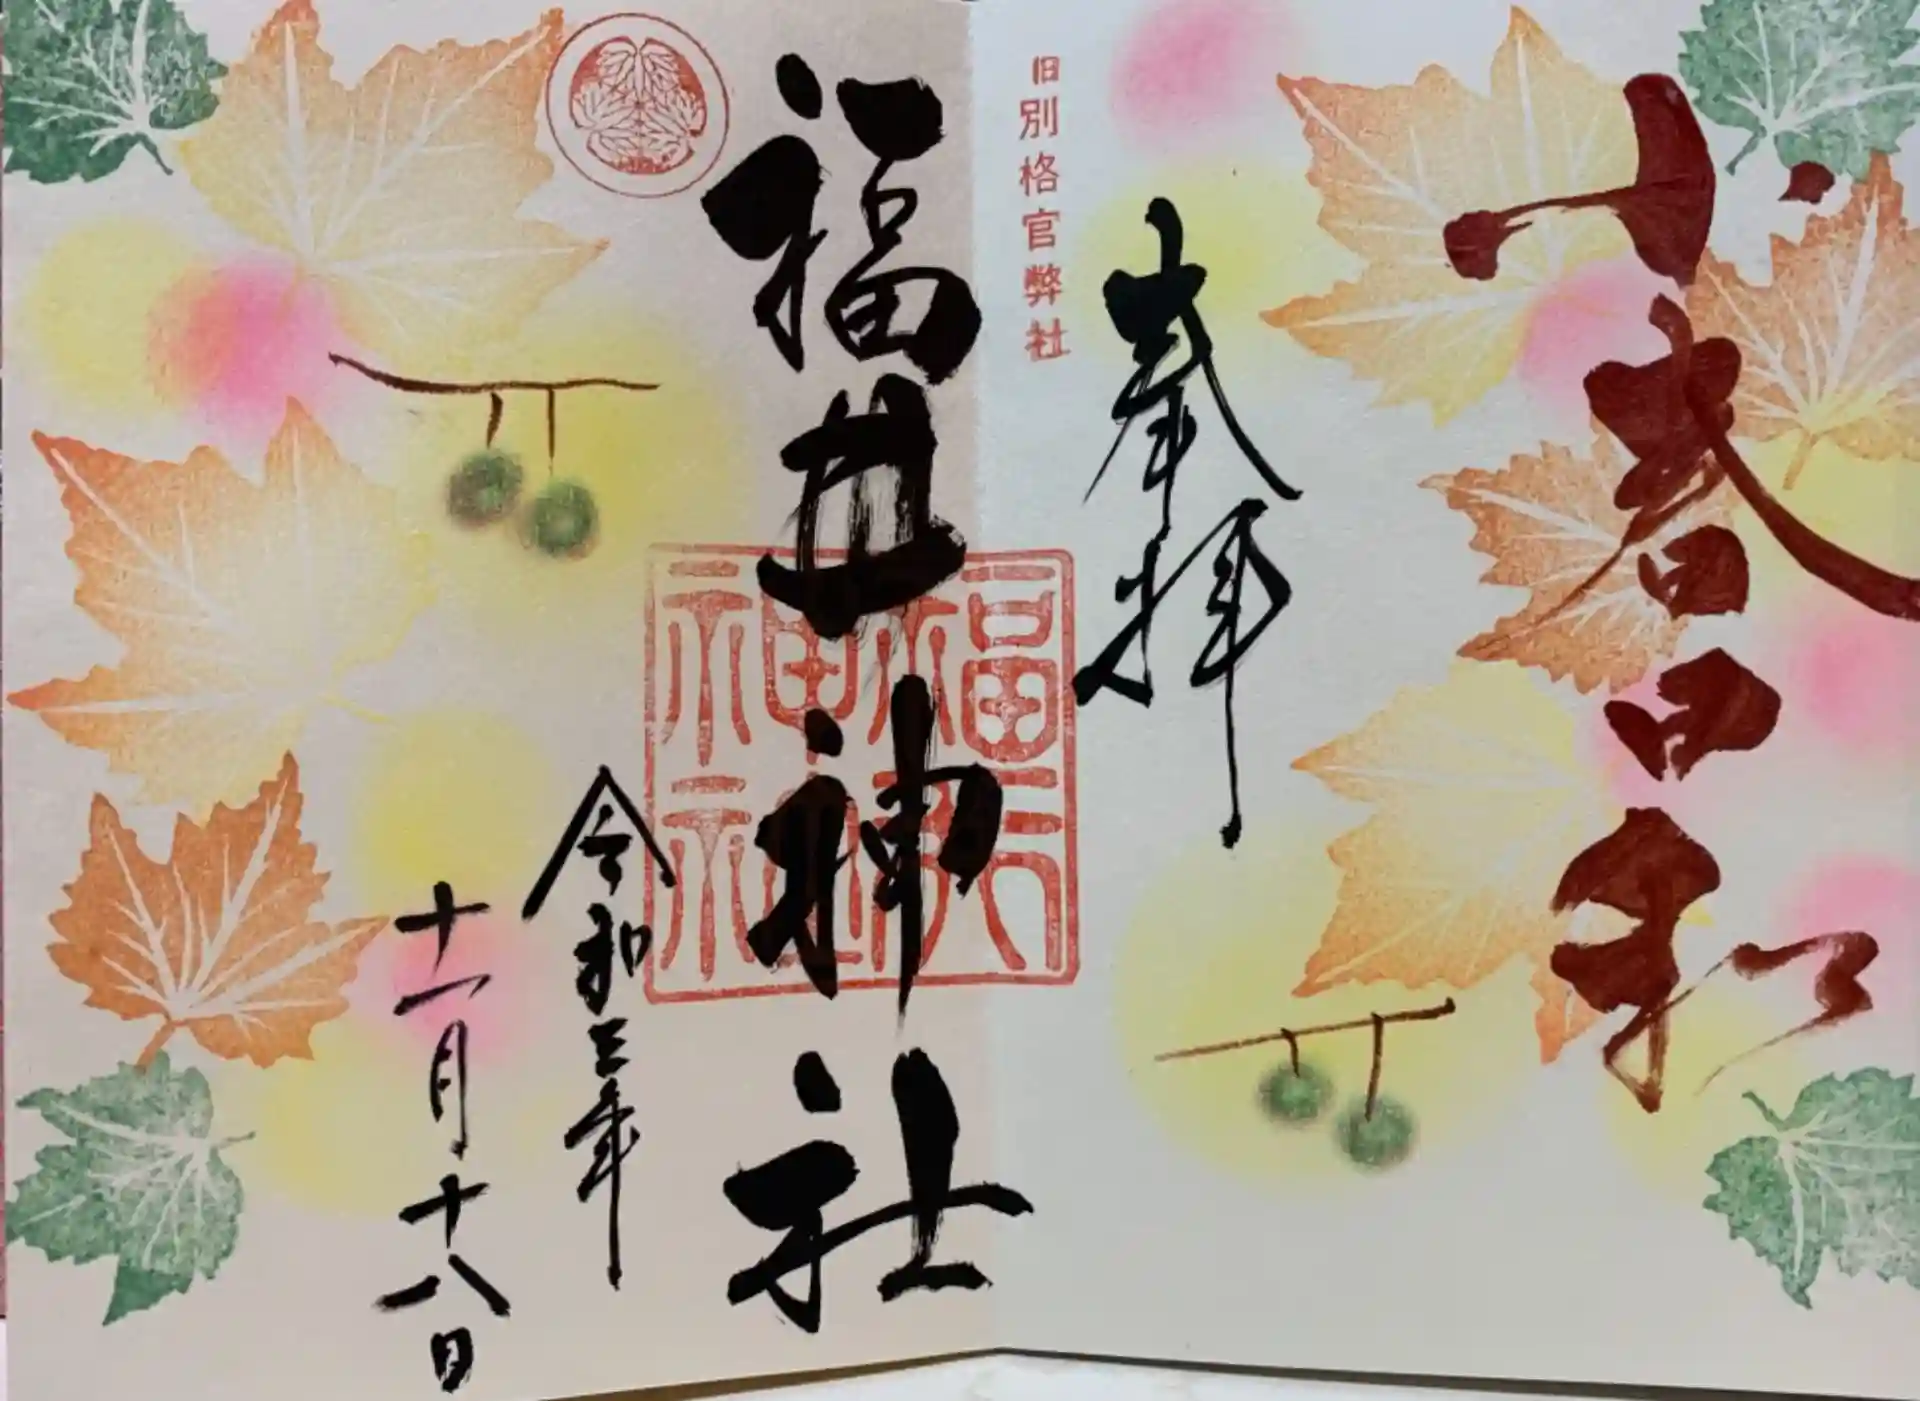 小春日和
奉拝
旧別格官幣社
福井神社
福井神社
令和三年
十一月十八日